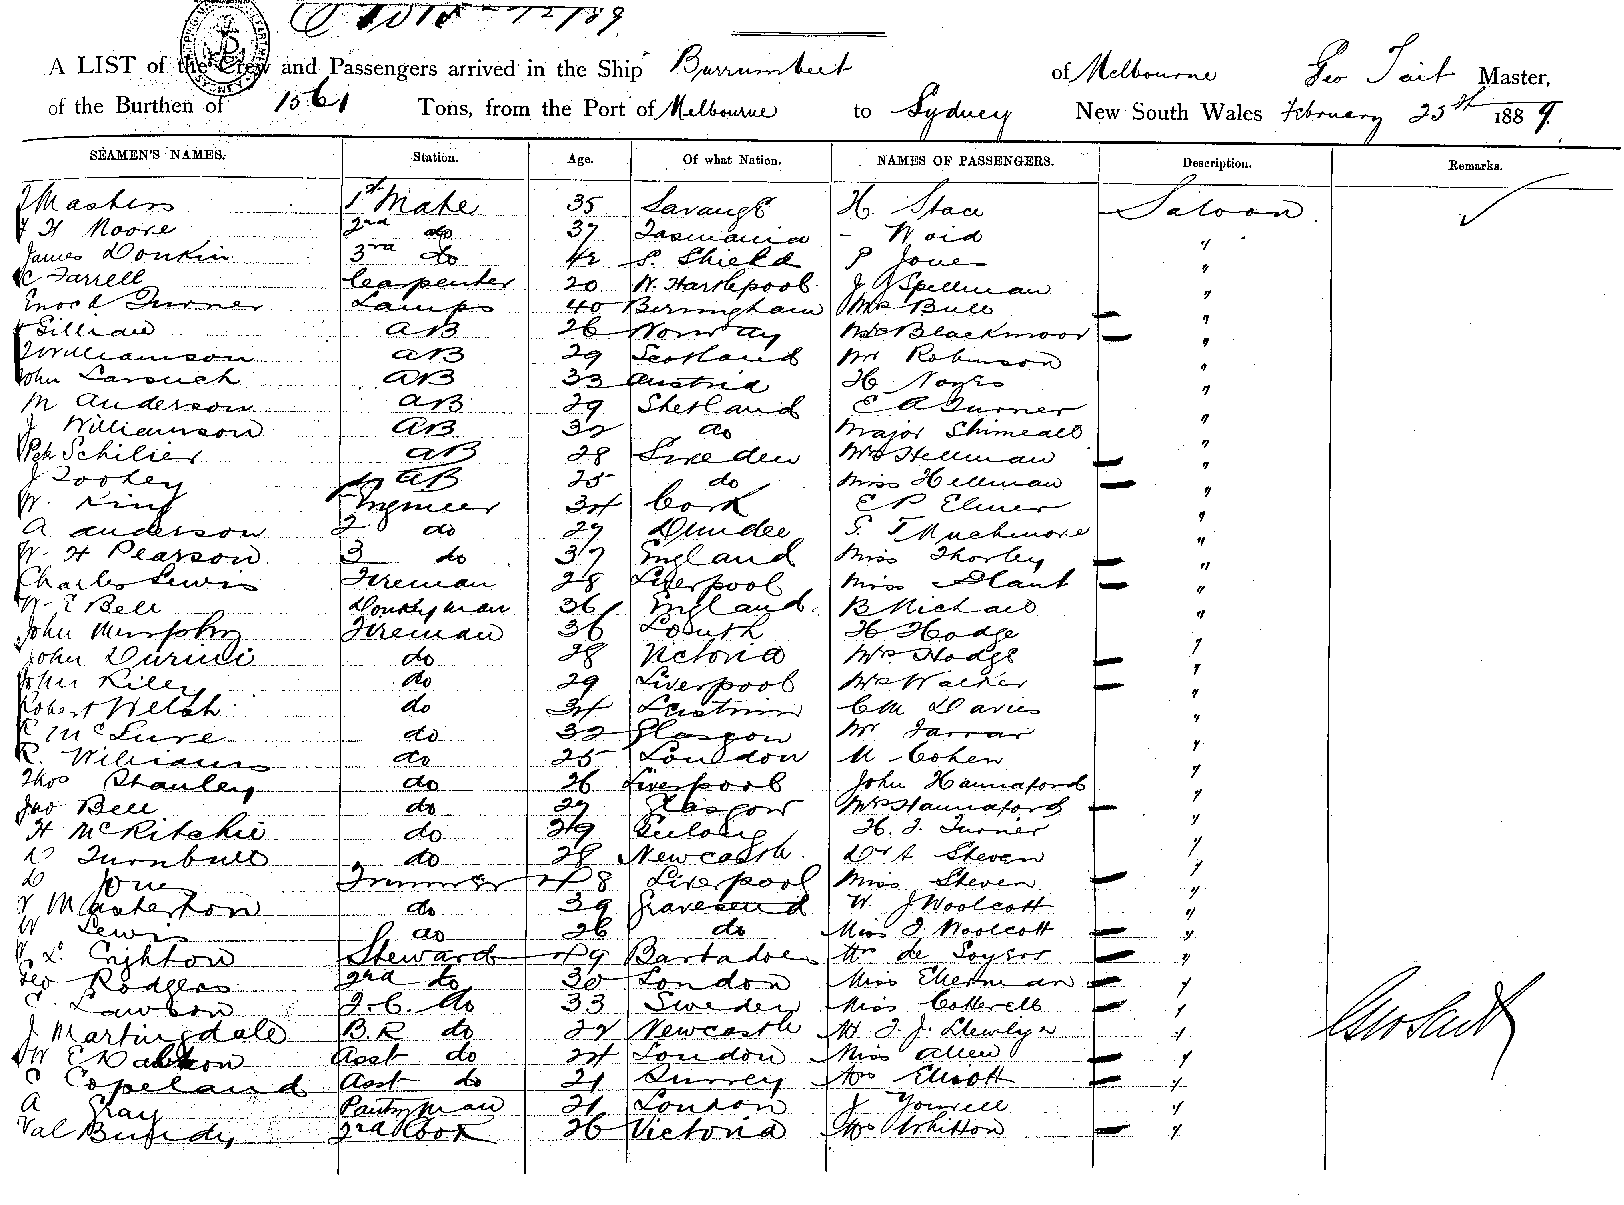 A LIST of the Crew and Passengers arrived in the Ship Burrumbeet of Melbourne Geo Tait Master,
of the Burthen of 1561 Tons, from the Port of Melbourne to Sydney New South Wales February 25th 1889.
SEAMEN'S NAMES. Station. Age. Of what Nation. NAMES OF PASSENGERS. Description. Remarks.
Masters 1st Mate 35 H Stace Saloon
J H Moore 2nd do 37 Tasmania - Woid "
James Donkin 3rd do 42 S. Shield P Jones "
C Farrell Carpenter 20 W. Harthpool J Spellman "
Enoch Turner Lamps 40 Birmingham Mrs Bull "
Gillian AB 26 Norway Mrs Blackmoor "
Williamson AB 29 Scotland Mr Robinson "
John AB 33 Austria H Noyes "
M Anderson AB 29 Shetland E A Turner "
J Williamson AB 32 do Major Shimeall "
Schilier AB 28 Sweden Mrs Hellman "
J Toohey AB 25 do Miss Hellman "
W. King Engineer 34 Cork E P Elmer "
A Anderson 2 do 27 Dundee T Muchmore "
W. H Pearson 3 do 37 England Miss Thorley "
Charles Lewis Fireman 28 Liverpool Miss Plant "
W. E Bell Donkyman 36 England B Michael "
John Murphy Fireman 36 Louth H Hodge "
John do 28 Victoria Mrs Hodge "
John Riley do 29 Liverpool Mrs Walker "
Robert Welsh do 34 C M Davies "
McLure do 32 Glasgow Mr Farrar "
R. Williams do 25 London M Cohen "
Thos Stanley do 26 Liverpool John Hannaford "
Jno Bell do 27 Glasgow Mrs Hannaford "
H McRitchie do 29 Geelong H. J. Turner "
D Turnbull do 28 Newcastle Steven "
D Jones Trimmer 48 Liverpool Miss Steven "
Masterton do 39 Gravesend W J Woolcott "
W Lewis do 26 do Miss J Woolcott "
Crighton Steward 49 Barbadoes Mrs de Soyres "
Geo Rodgers 2nd do 30 London Miss "
C Lawson F.C. do 33 Sweden Miss Cotterell "
J Martingdale B.R do 22 Newcastle J. J. Llewlyn "
Asst do 24 London Miss Allen "
C Copeland Asst do 21 Surrey Mrs Elliott "
A Gray Pantryman 21 London J Yowell "
Val Bundy 2nd Cook 26 Victoria Mrs Whitton "
Geo Tait